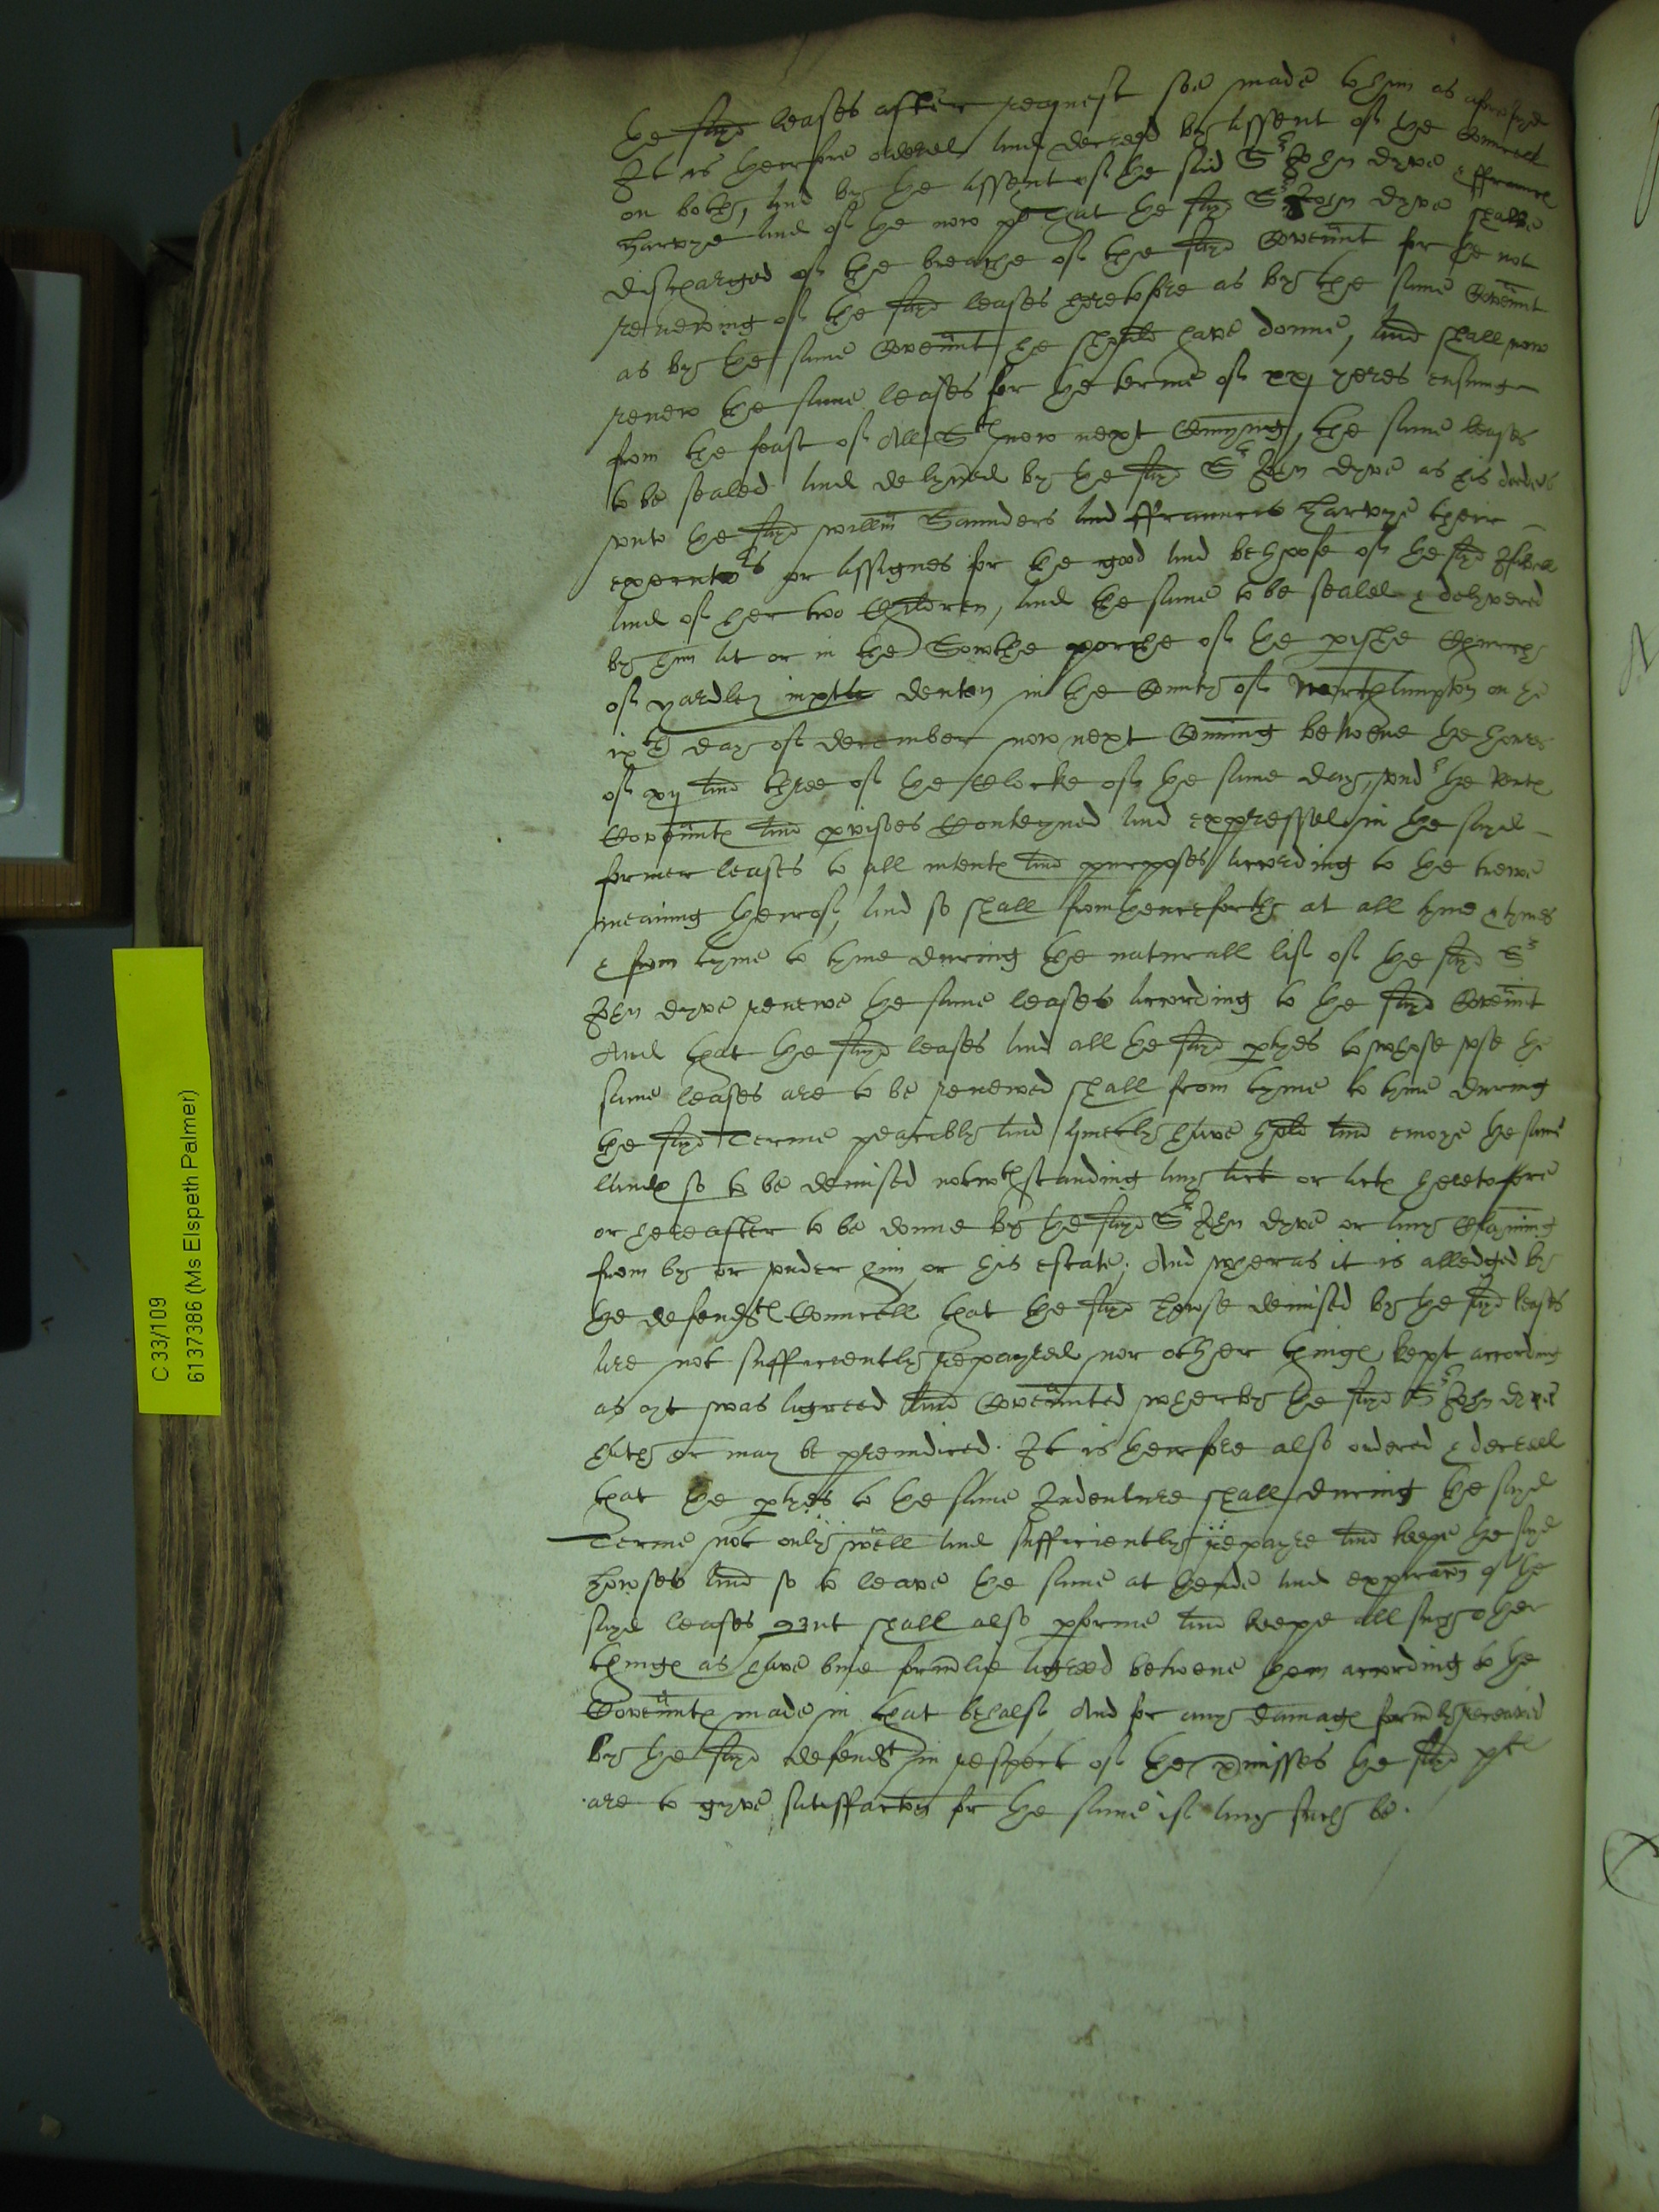 the sayd leases after request soe made to hym as aforesayd
It is therfore ordered and decreed by assent of the Councell
on bothe, and by the assent of the said Sr John Dyve & ffraunc
Harvye and of the now pl That the sayd Sr John Dyve shalbe
discharged of the breache of the sayd Covennt for the not
renewing of the sayd leases heretofore as by the same Covennt
as by the same Covennt he should have donne, and shall now
renew the same leases for the terme of xxj yeres ensuing
from the feast of All Stes now next Comyng, the same leases
to be sealed and delyvred by the sayd Sr John Dyve as his deedes
unto the sayd willm Saunders and ffraunces Harvye their
executors or assignes for the good and behoofe of the sayd
and of her two Children, and the same to be sealed & delyvered
by him at or in the Sowthe porche of the pishe Churche
of yardley iuxta denton in the County of Northampton on the
ixth day of December now next Coming betwene the howres
of xij and three of the Clocke of the same day, undr the Rent
Covennte and pvisoes Conteyned and expressed in the sayd
former leases to all intente and purposes according to the trewe
meaning therof, and so shall from henceforthe at all tyme & tymes
& from tyme to tyme during the naturall lif of the sayd Sr
John Dyve renewe the same leases according to the sayd Covennt
And that the sayd leases and all the sayd ptyes to whose use the
same leases are to be renewed shall from tyme to tyme during
the sayd Terme peacibly and quietly have hold and enioye the same
lande so to be demised notwthstanding any act or acte heretofore
or hereafter to be donne by the sayd Sr John Dyve or any Clayming
from by or under him or his estate; And wheras it is alledged by
the defendte Councell that the sayd howse demised by the sayd leases
are not sufficiently repayred nor other thinge kept according
as yt was agreed and Covennted wherby the sayd Sr John Dyve
hath or may be preiudiced. It is therfore also ordered & decreed
that the ptyes to the same Indenture shall during the sayd
Terme not only well and sufficiently repayre and keepe the sayd
howses and so to leave the same at thende and expiracon of the
sayd leases but shall also pforme and keepe all such other
thinge as have bine formlie agreed betwene them according to the
Covennte made in that behalf, And for any damage formly receaved
by the sayd defendt in respect of the pmisses the sayd plte
are to gyve satisfaction for the same if any such be.
C 33/109
6137386 (Ms Elspeth Palmer)